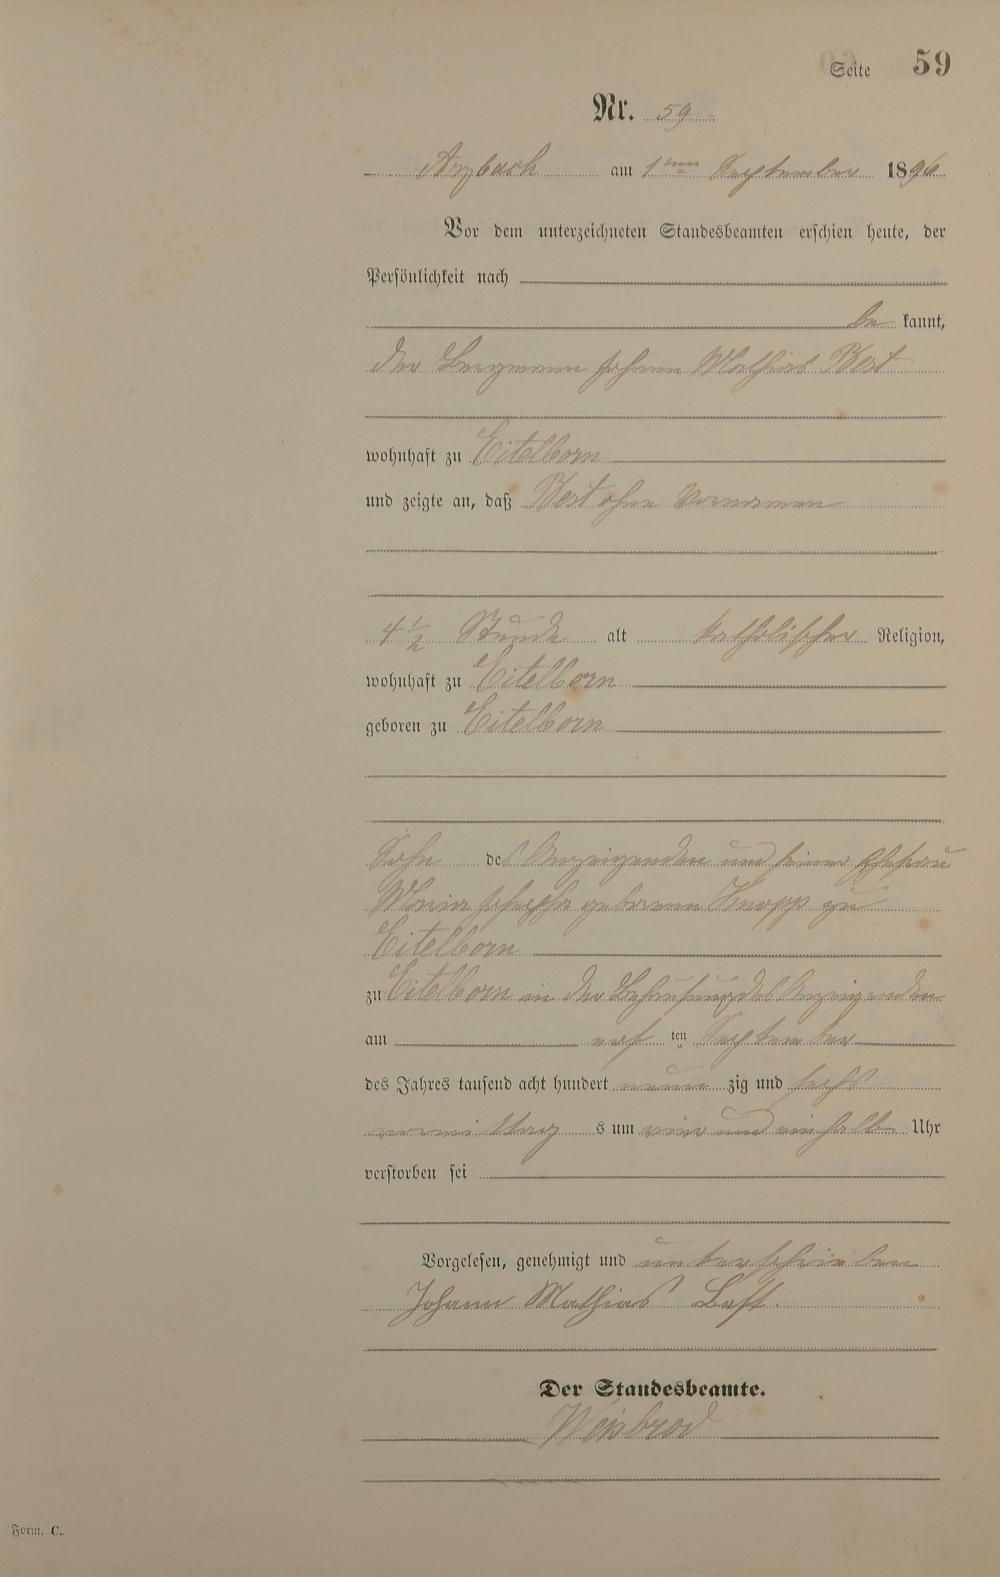 Seite 59
Nr. 59
Arzbach am 1ten September 1896
Vor dem unterzeichneten Standesbeamten erschien heute, der
Persönlichkeit nach
be kannt,
der Bergmann Johann Mathias Best
wohnhaft zu Eitelborn
und zeigte an, daß Best ohne Vornamen
4 1/2 Stunde alt katholischer Religion,
wohnhaft zu Eitelborn
geboren zu Eitelborn
Sohn des Anzeigenden und seiner Ehefrau
Maria Josepha geborene Knopp zu
Eitelborn
zu Eitelborn in der Behausung des Anzeigenden
am ersten September
des Jahres tausend acht hundert neun zig und sechs
vormittags um vier und einhalb Uhr
verstorben sei
Vorgelesen, genehmigt und unterschrieben
Johann Mathias Best.
Der Standesbeamte.
Weisbrod
Form. C.